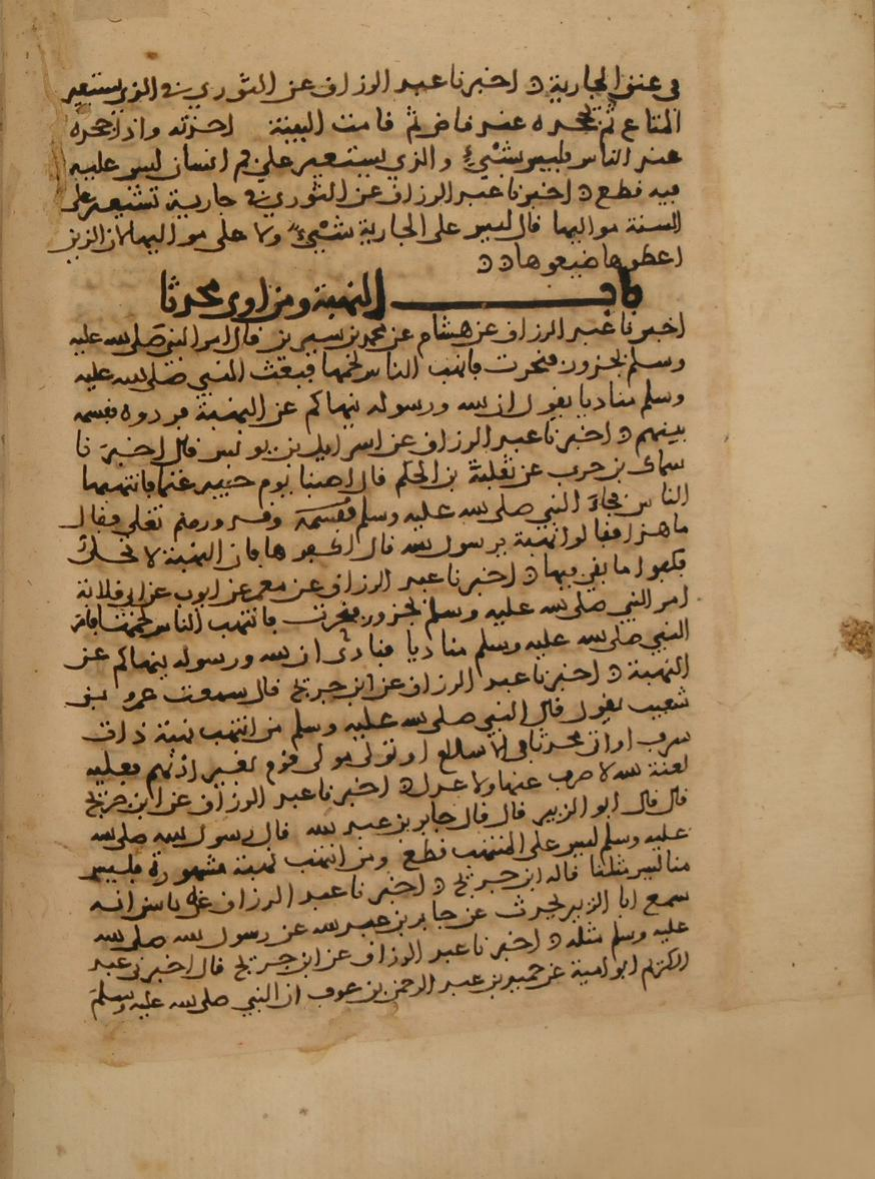 في عنق الجارية ○ اخبرنا عبد الرزاق عن الثوري في الذي يستعير
المتاع ثم يجحده عند قاض ثم قامت البينة اخذته واذا جحده
عند الناس فليس بشيء والذي يستعير على فم انسان ليس عليه
فيه قطع ○ اخبرنا عبد الرزاق عن الثوري في جارية تستعير على
السنة مواليها قال ليس على الجارية شيء ولا على مواليها لان الذين
اعطوها ضيعوها ○○
باب النهبة ومن اوى محدثا
اخبرنا عبد الرزاق عن هشام عن محمد بن سيرين قال امر النبي صلى الله عليه
وسلم بجزور فنحرت فانتهب الناس لحمها فبعث النبي صلى الله عليه
وسلم مناديا يقول ان الله ورسوله ينهاكم عن النهبة فردوه فقسمه
بينهم ○ اخبرنا عبد الرزاق عن اسراييل بن يونس قال اخبرنا
سماك بن حرب عن ثعلبة بن الحكم قال اصبنا يوم حنين غنما فانتهبها
الناس فجاء النبي صلى الله عليه وسلم وقدورهم تغلي فقال
ما هذا فقالوا نهبة يرسول الله قال اكفوها فان النهبة لا تحل
فكفوا ما بقي فيها ○ اخبرنا عبد الرزاق عن معمر عن ايوب عن ابي قلابة
امر النبي صلى الله عليه وسلم بجزور فنحرت فانتهب الناس لحمها فامر
النبي صلى الله عليه وسلم مناديا فنادى ان الله ورسوله ينهاكم عن
النهبة ○ اخبرنا عبد الرزاق عن ابن جريج قال سمعت عمرو بن
شعيب يقول قال النبي صلى الله عليه وسلم من انتهب نهبة ذات
سرف او اوى محدثا في الاسلام او تولى مولى قوم بغير اذنهم فعليه
لعنة الله لا صرف عنها ولا عدل ○ اخبرنا عبد الرزاق عن ابن جريج
قال قال ابو الزبير قال قال جابر بن عبد الله قال رسول الله صلى الله
عليه وسلم ليس على المنتهب قطع ومن انتهب نهبة مشهورة فليس
منا ليس مثلنا قاله ابن جريج ○ اخبرنا عبد الرزاق عن ياسين انه
سمع ابا الزبير يحدث عن جابر بن عبد الله عن رسول الله صلى الله
عليه وسلم مثله ○ اخبرنا عبد الرزاق عن ابن جريج قال اخبرني عبد
الكريم ابو امية عن حميد بن عبد الرحمن بن عوف ان النبي صلى الله عليه وسلم